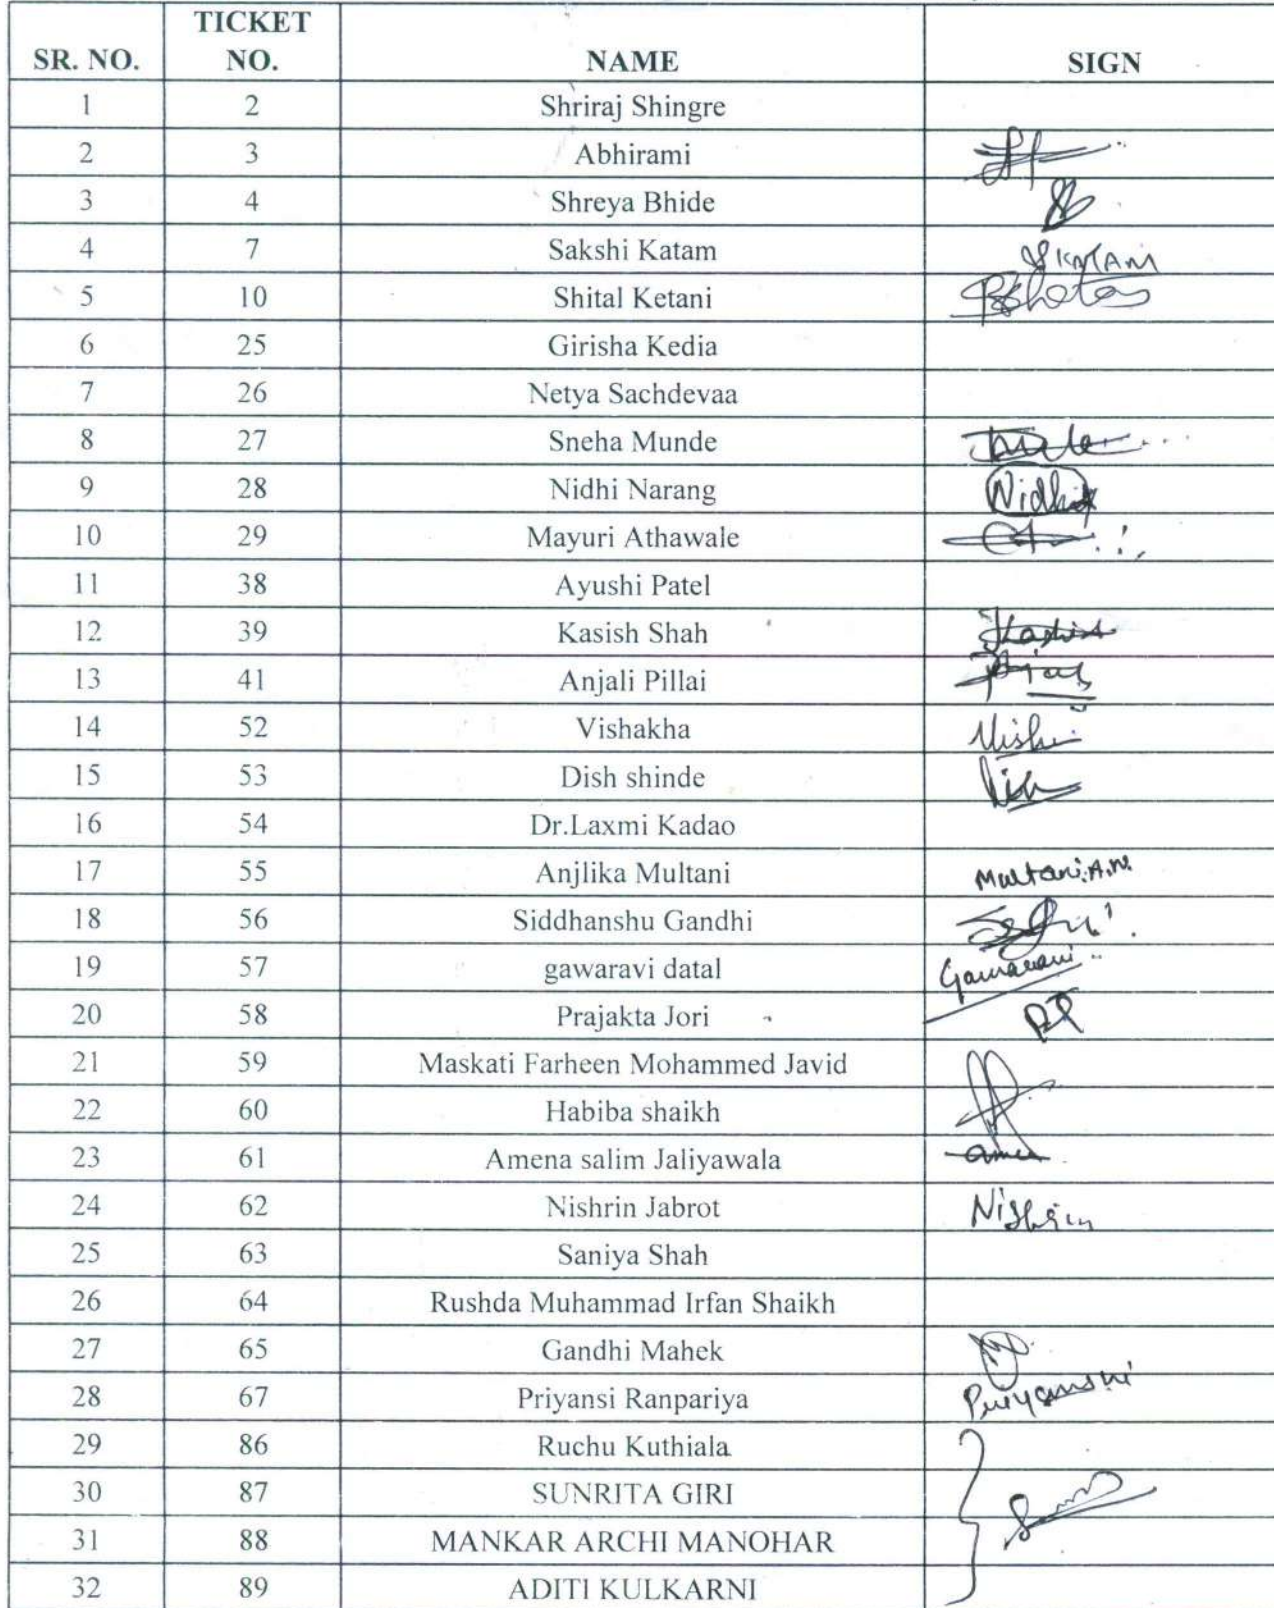 SR. NO. TICKET NO. NAME SIGN
1 2 Shriraj Shingre
2 3 Abhirami
3 4 Shreya Bhide
4 7 Sakshi Katam SKATAM
5 10 Shital Ketani
6 25 Girisha Kedia
7 26 Netya Sachdevaa
8 27 Sneha Munde
9 28 Nidhi Narang Nidhi
10 29 Mayuri Athawale
11 38 Ayushi Patel
12 39 Kasish Shah Kashish
13 41 Anjali Pillai
14 52 Vishakha
15 53 Dish shinde
16 54 Dr.Laxmi Kadao
17 55 Anjlika Multani Multani.A.N.
18 56 Siddhanshu Gandhi
19 57 gawaravi datal
20 58 Prajakta Jori
21 59 Maskati Farheen Mohammed Javid
22 60 Habiba shaikh
23 61 Amena salim Jaliyawala
24 62 Nishrin Jabrot Nishrin
25 63 Saniya Shah
26 64 Rushda Muhammad Irfan Shaikh
27 65 Gandhi Mahek
28 67 Priyansi Ranpariya Priyanshi
29 86 Ruchu Kuthiala
30 87 SUNRITA GIRI
31 88 MANKAR ARCHI MANOHAR
32 89 ADITI KULKARNI